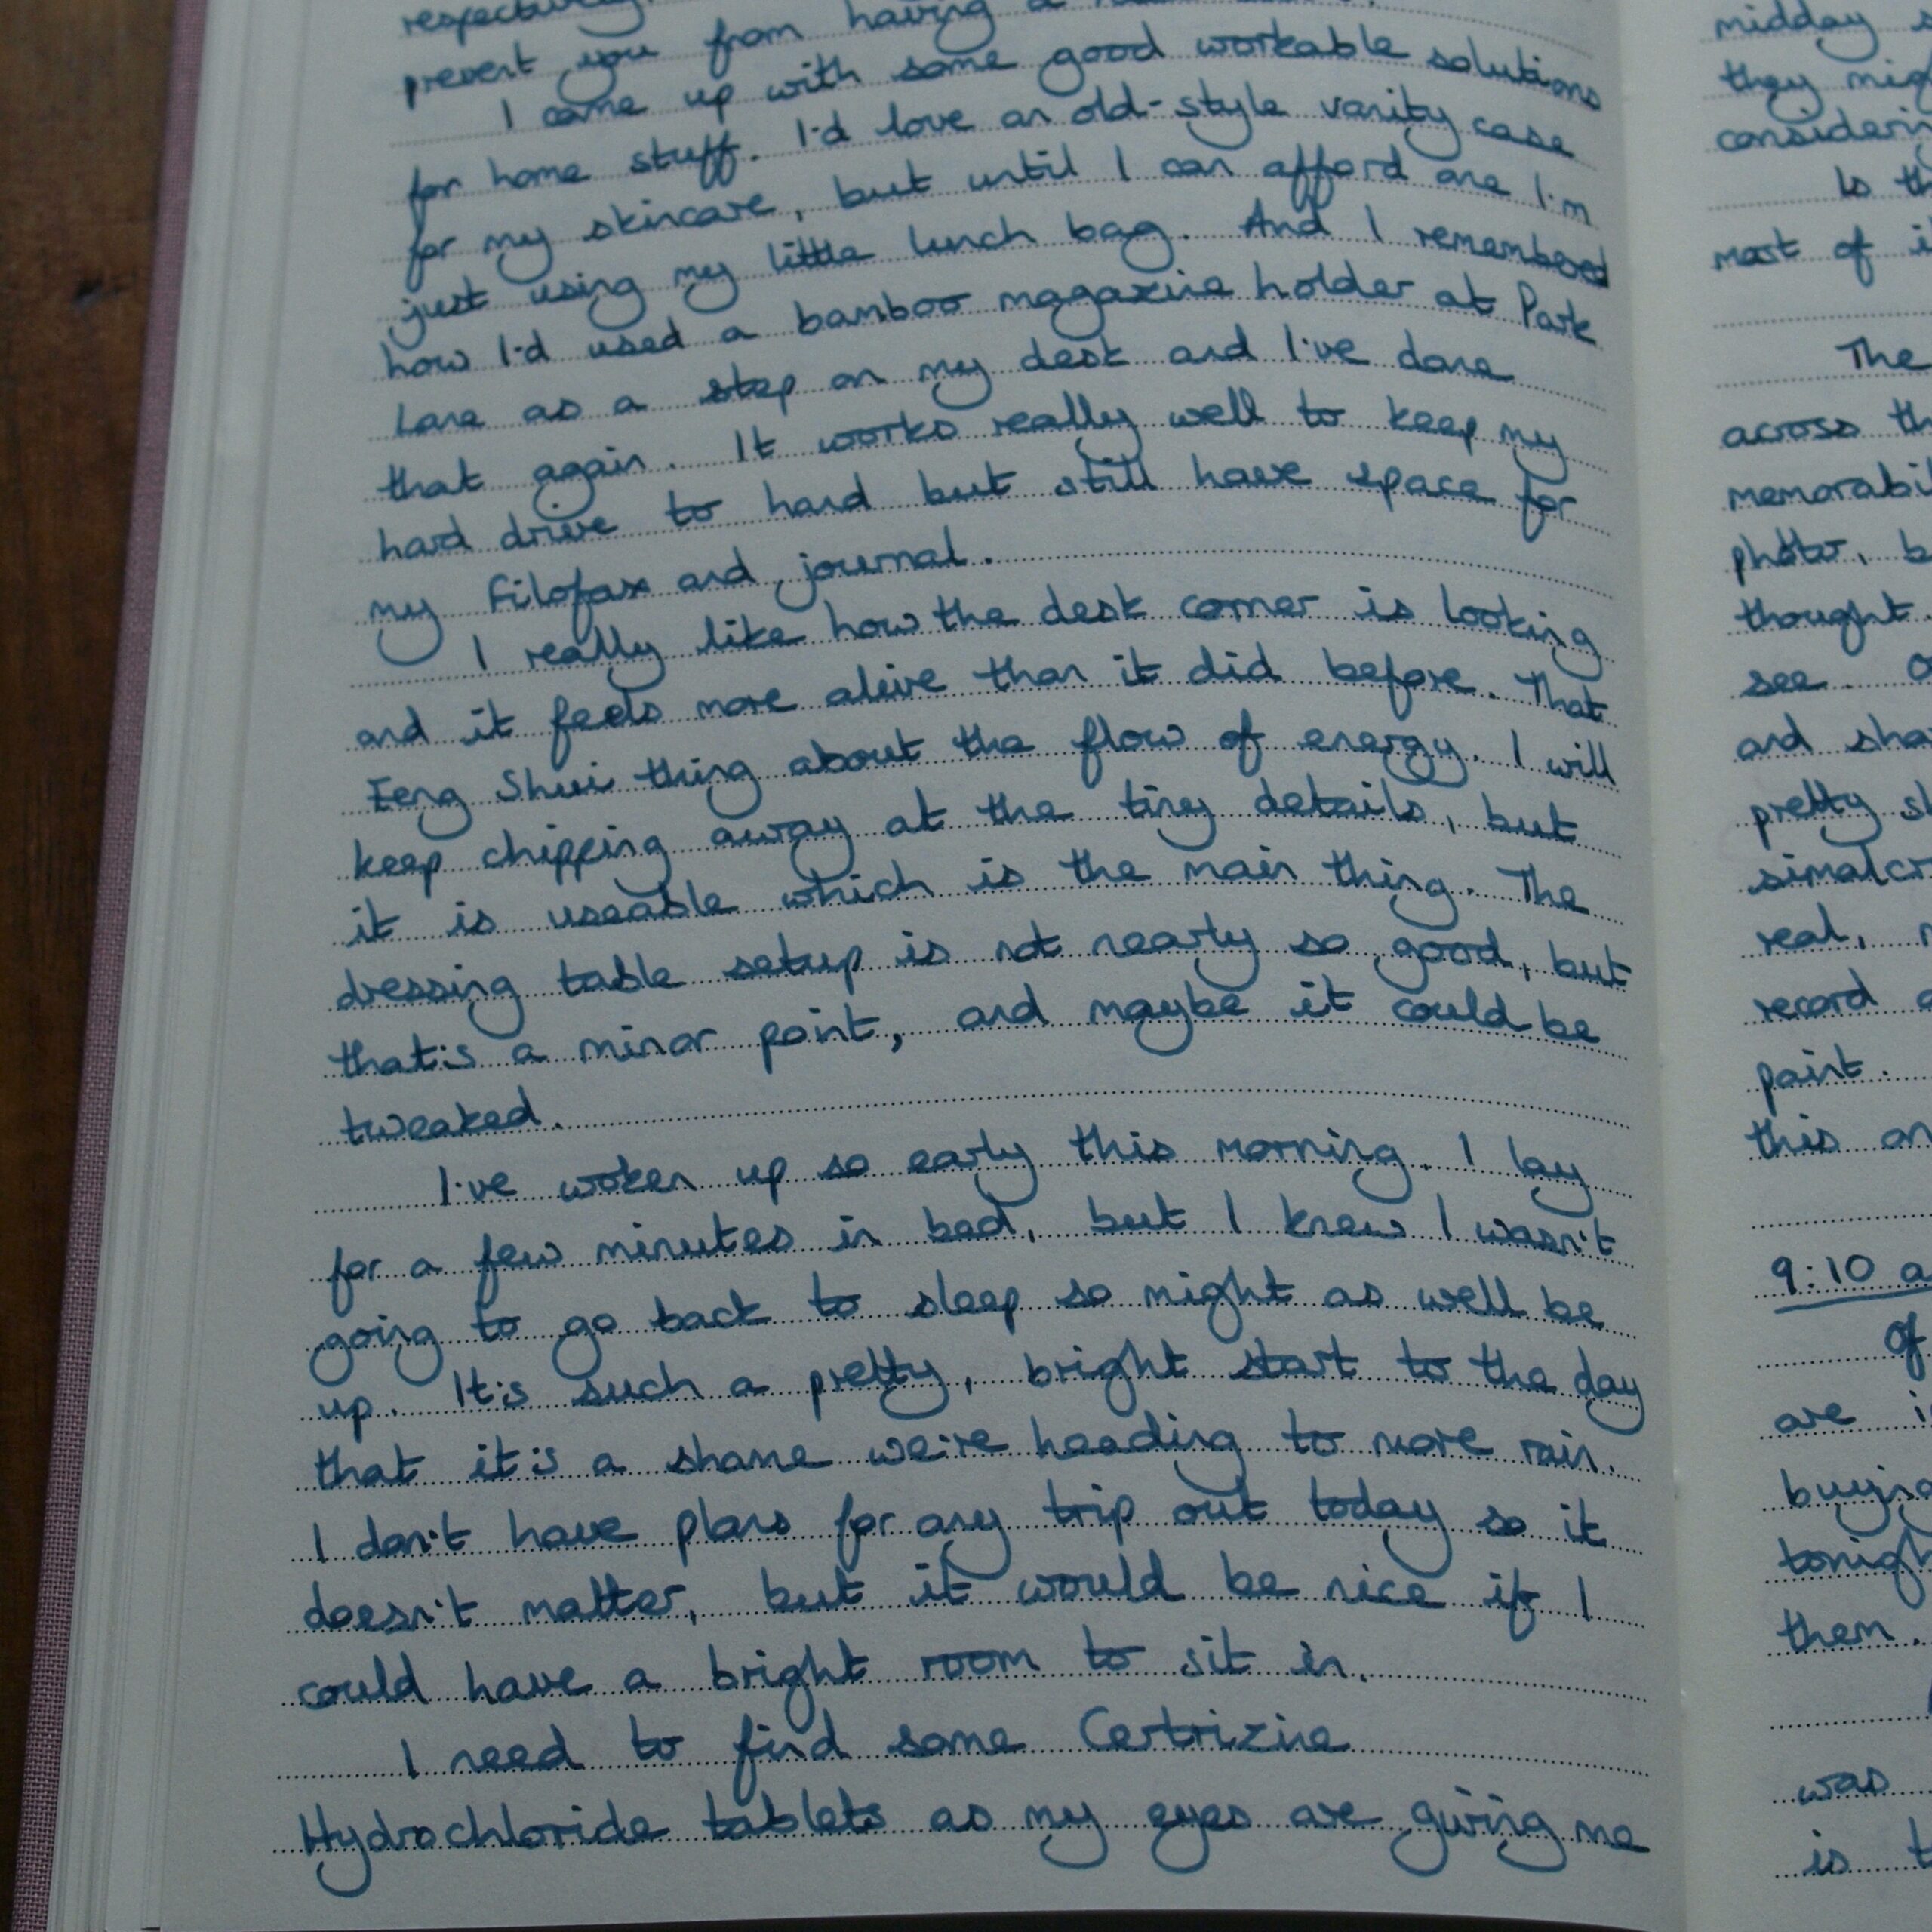 respectively
prevent you from having a
I came up with some good workable solutions
for home stuff. I'd love an old-style vanity case
for my skincare, but until I can afford one I'm
just using my little lunch bag. And I remembered
how I'd used a bamboo magazine holder at Park
Lane as a step on my desk and I've done
that again. It works really well to keep my
hard drive to hand but still have space for
my Filofax and journal.
I really like how the desk corner is looking
and it feels more alive than it did before. That
Feng Shui thing about the flow of energy. I will
keep chipping away at the tiny details, but
it is useable which is the main thing. The
dressing table setup is not nearly so good, but
that's a minor point, and maybe it could be
tweaked.
I've woken up so early this morning. I lay
for a few minutes in bed, but I knew I wasn't
going to go back to sleep so might as well be
up. It's such a pretty, bright start to the day
that it's a shame we're heading to more rain.
I don't have plans for any trip out today so it
doesn't matter, but it would be nice if I
could have a bright room to sit in.
I need to find some Certrizine
Hydrochloride tablets as my eyes are giving me
midday
they
considering
Is
most of
The
across
photos,
thought.
see.
and
pretty
real,
record
point.
this
9:10
of
are
buying
them.
was
is